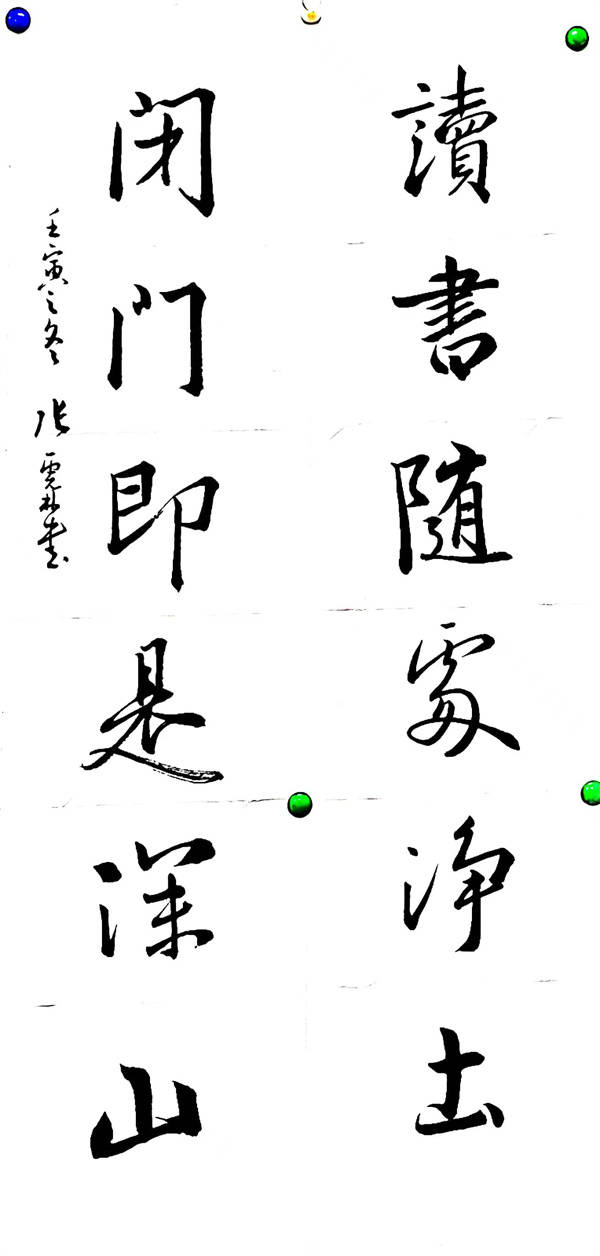 讀書随處浄土
闭门即是深山
壬寅之冬 张 霖书